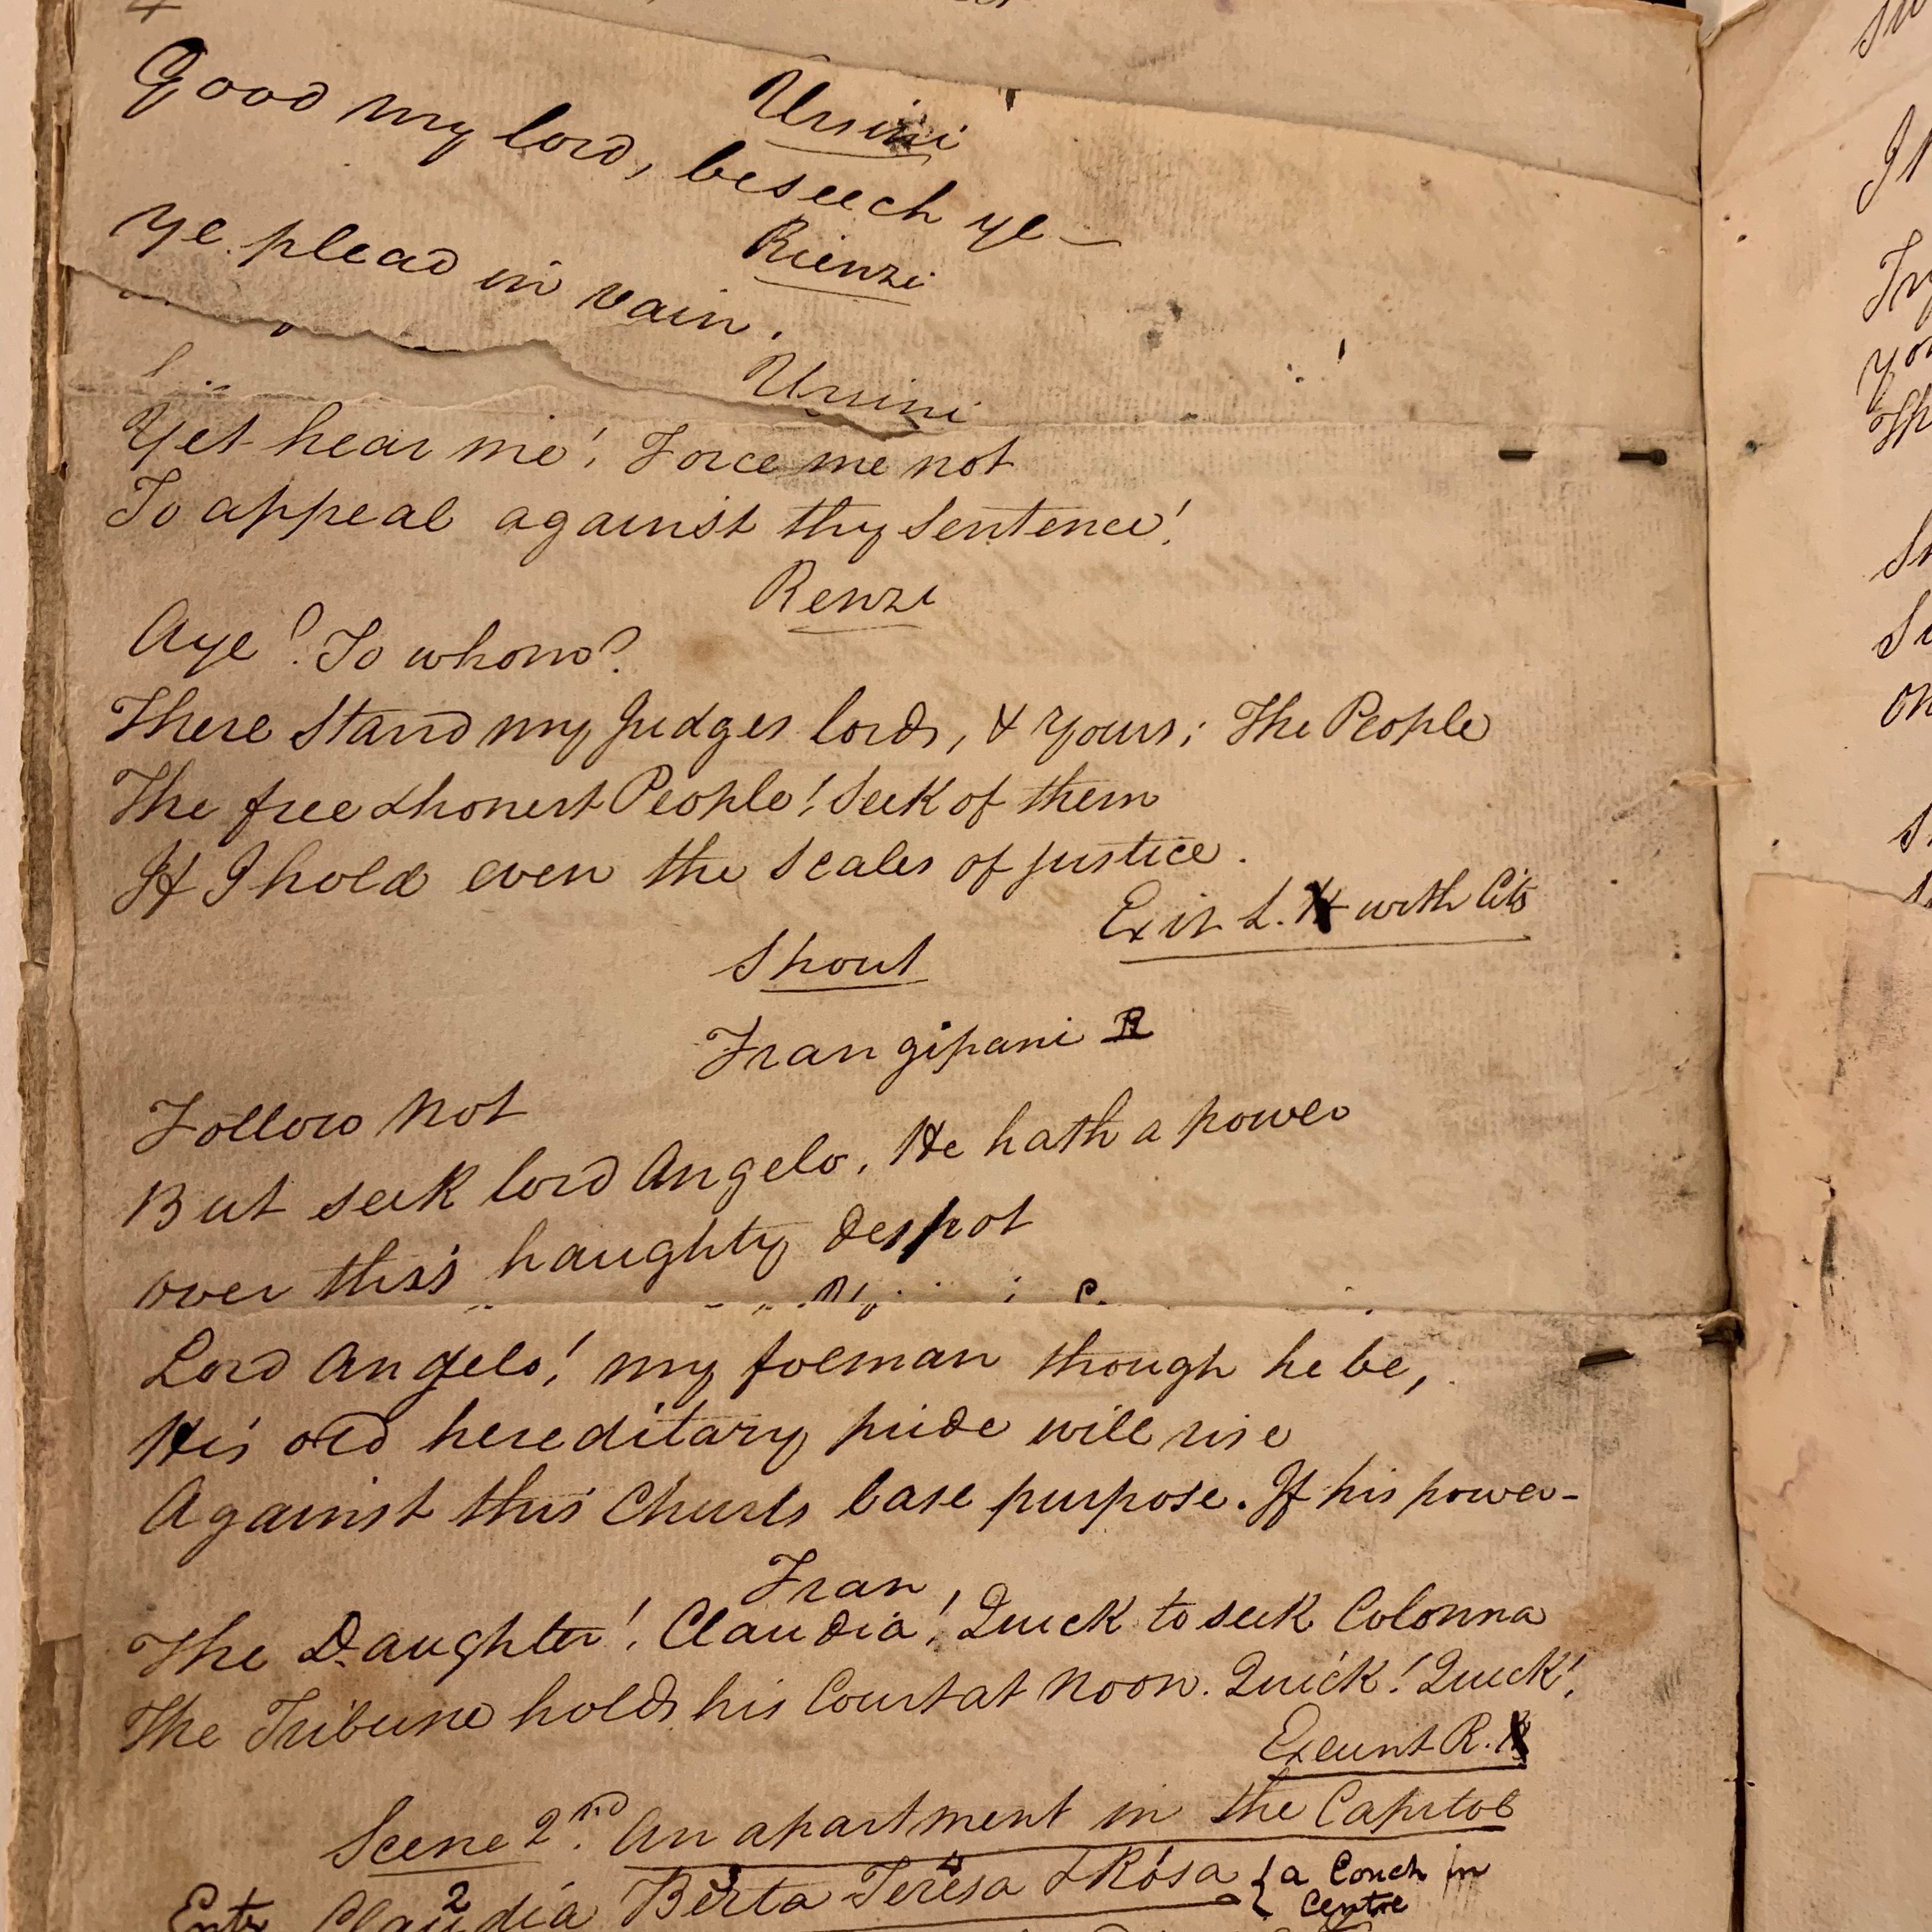 Ursini
Good my lord, beseech ye —
Rienzi
Ye plead in vain.
Ursini
Yet hear me! Force me not
To appeal against thy Sentence!
Renzi
Aye? To whom?
There stand my Judges lords, & yours; The People
The free & honest People! Seek of them
If I hold even the scales of justice.
Exit L. with Cits
Shout
Frangipani R
Follow not
But seek lord Angelo. He hath a power
over this haughty despot
Lord Angelo! my foeman though he be,
His old hereditary pride will rise
Against this Churls base purpose. If his power-
Fran
The Daughter! Claudia! Quick to seek Colonna
The Tribune holds his Court at Noon. Quick! Quick!
Exeunt R.
Scene 2nd. An apartment in the Capitol
Entr Claudia 2 Berta 3 Teresa 4 & Rosa 1 { a Couch in
Centre